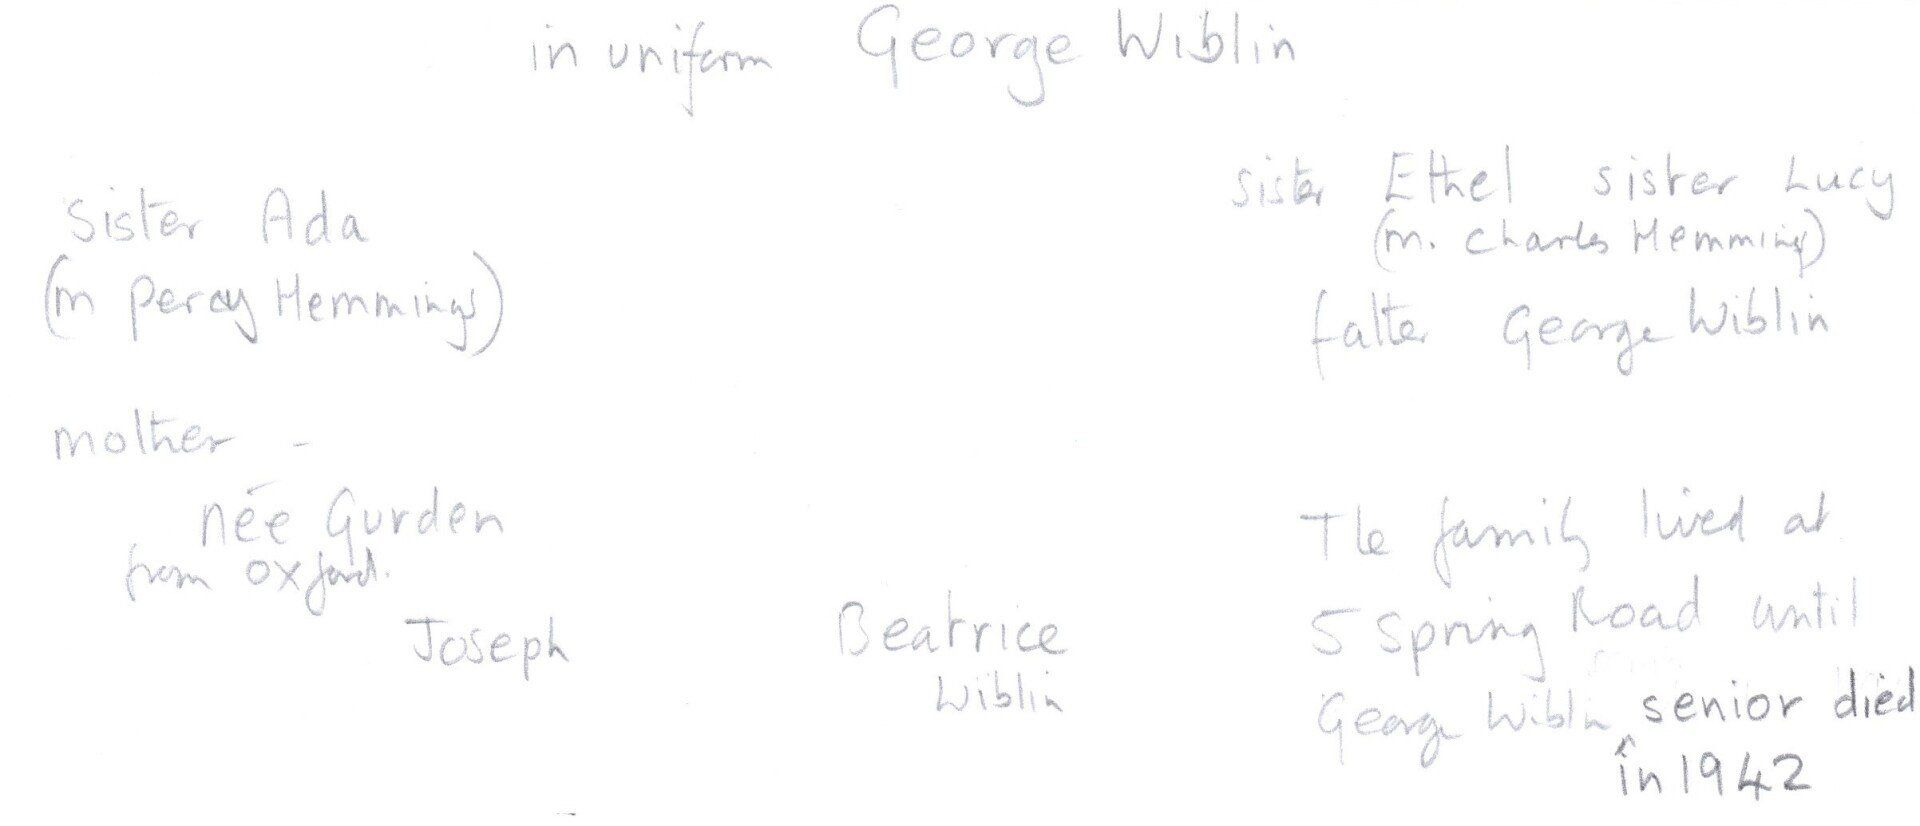 in uniform George Wiblin
sister Ethel sister Lucy
(m. Charles Hemmings)
Sister Ada
(m Percy Hemmings)
father George Wiblin
mother -
née Gurden
from Oxford.
Joseph
Beatrice
Wiblin
The family lived at
5 Spring Road until
George Wiblin senior died
in 1942